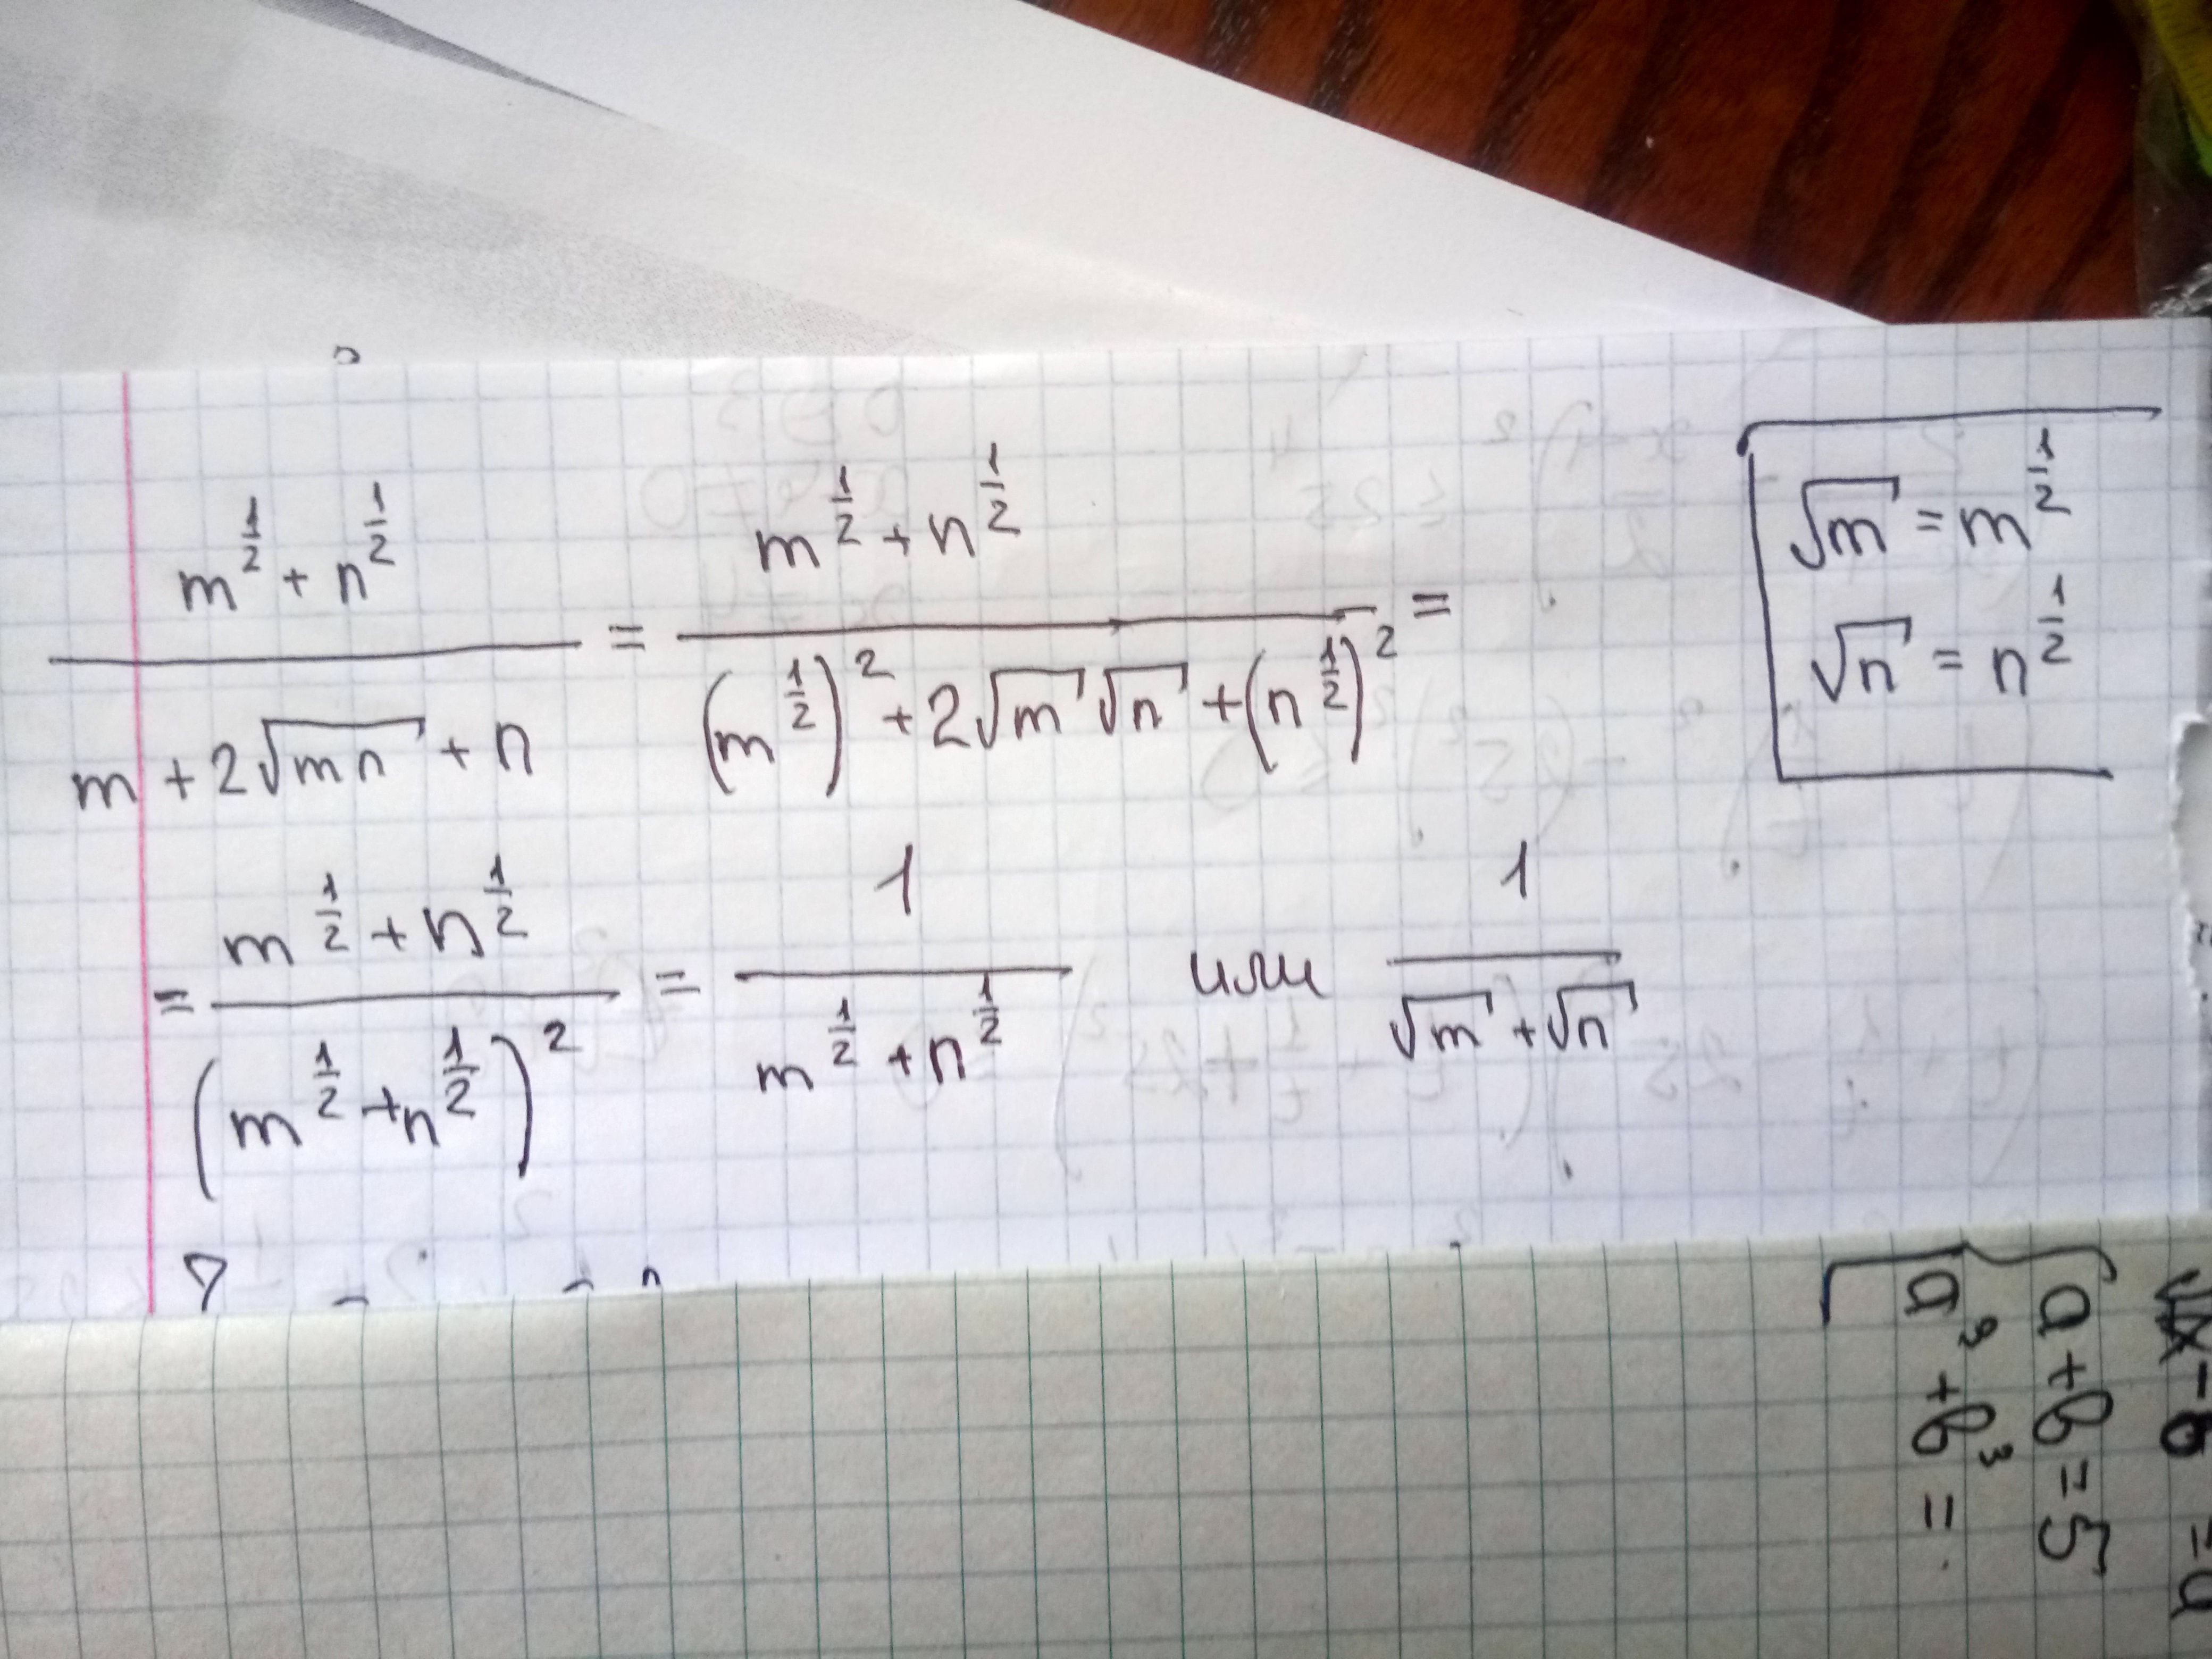 m^{1/2} + n^{1/2} / m + 2√mn + n = m^{1/2} + n^{1/2} / (m^{1/2})^2 + 2√m √n + (n^{1/2})^2 =
√m = m^{1/2}
√n = n^{1/2}
= m^{1/2} + n^{1/2} / (m^{1/2} + n^{1/2})^2 = 1 / m^{1/2} + n^{1/2} или 1 / √m + √n
a + b = 5
a^3 + b^3 =